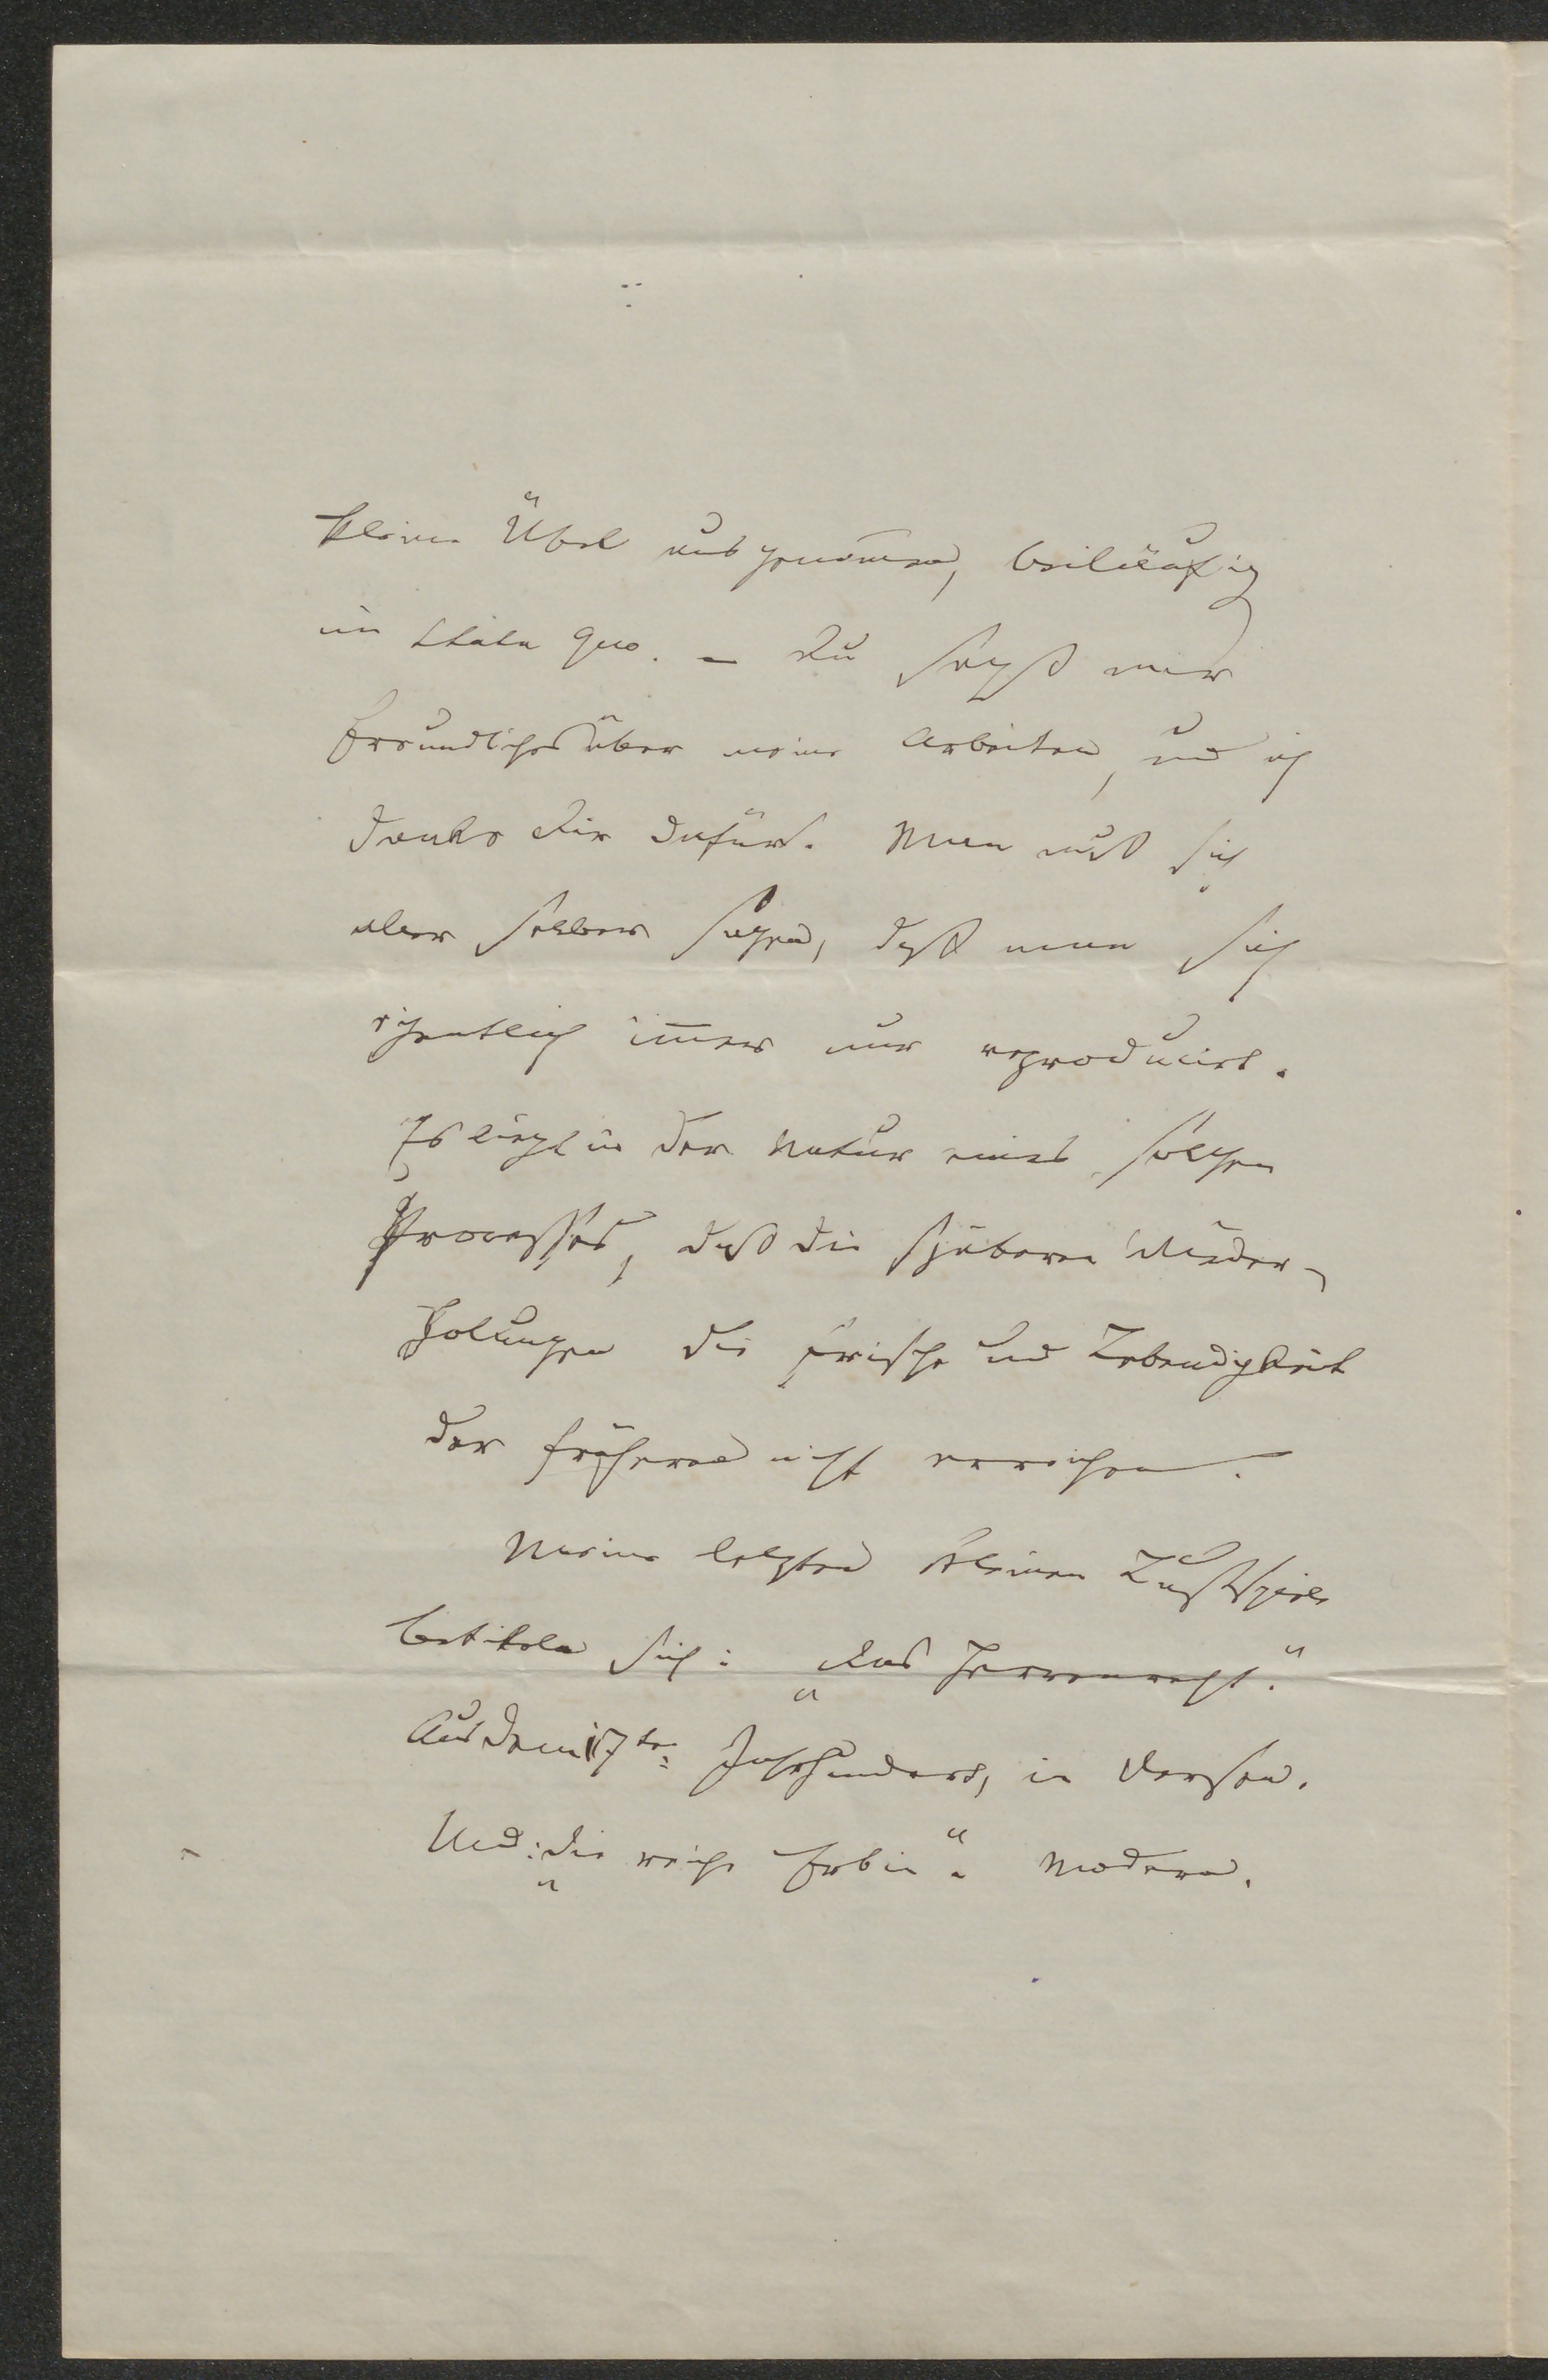 kleine Übel ausgenom̅en, beiläufig
in statu quo. – Du sagst mir
Freundliches über meine Arbeiten, und ich
danke Dir dafür. Man muß sich
aber selber sagen, daß man sich
eigentlich im̅er nur reproducirt.
Es liegt in der Natur eines solchen
Processes, daß die späteren Wieder-
holungen die Frische und Lebendigkeit
der früheren nicht erreichen.
Meine letzten kleinen Lustspiele
betiteln sich: „Das Herrenrecht."
Aus dem 17ten Jahrhundert, in Versen.
Und: „Die reiche Erbin". Modern.